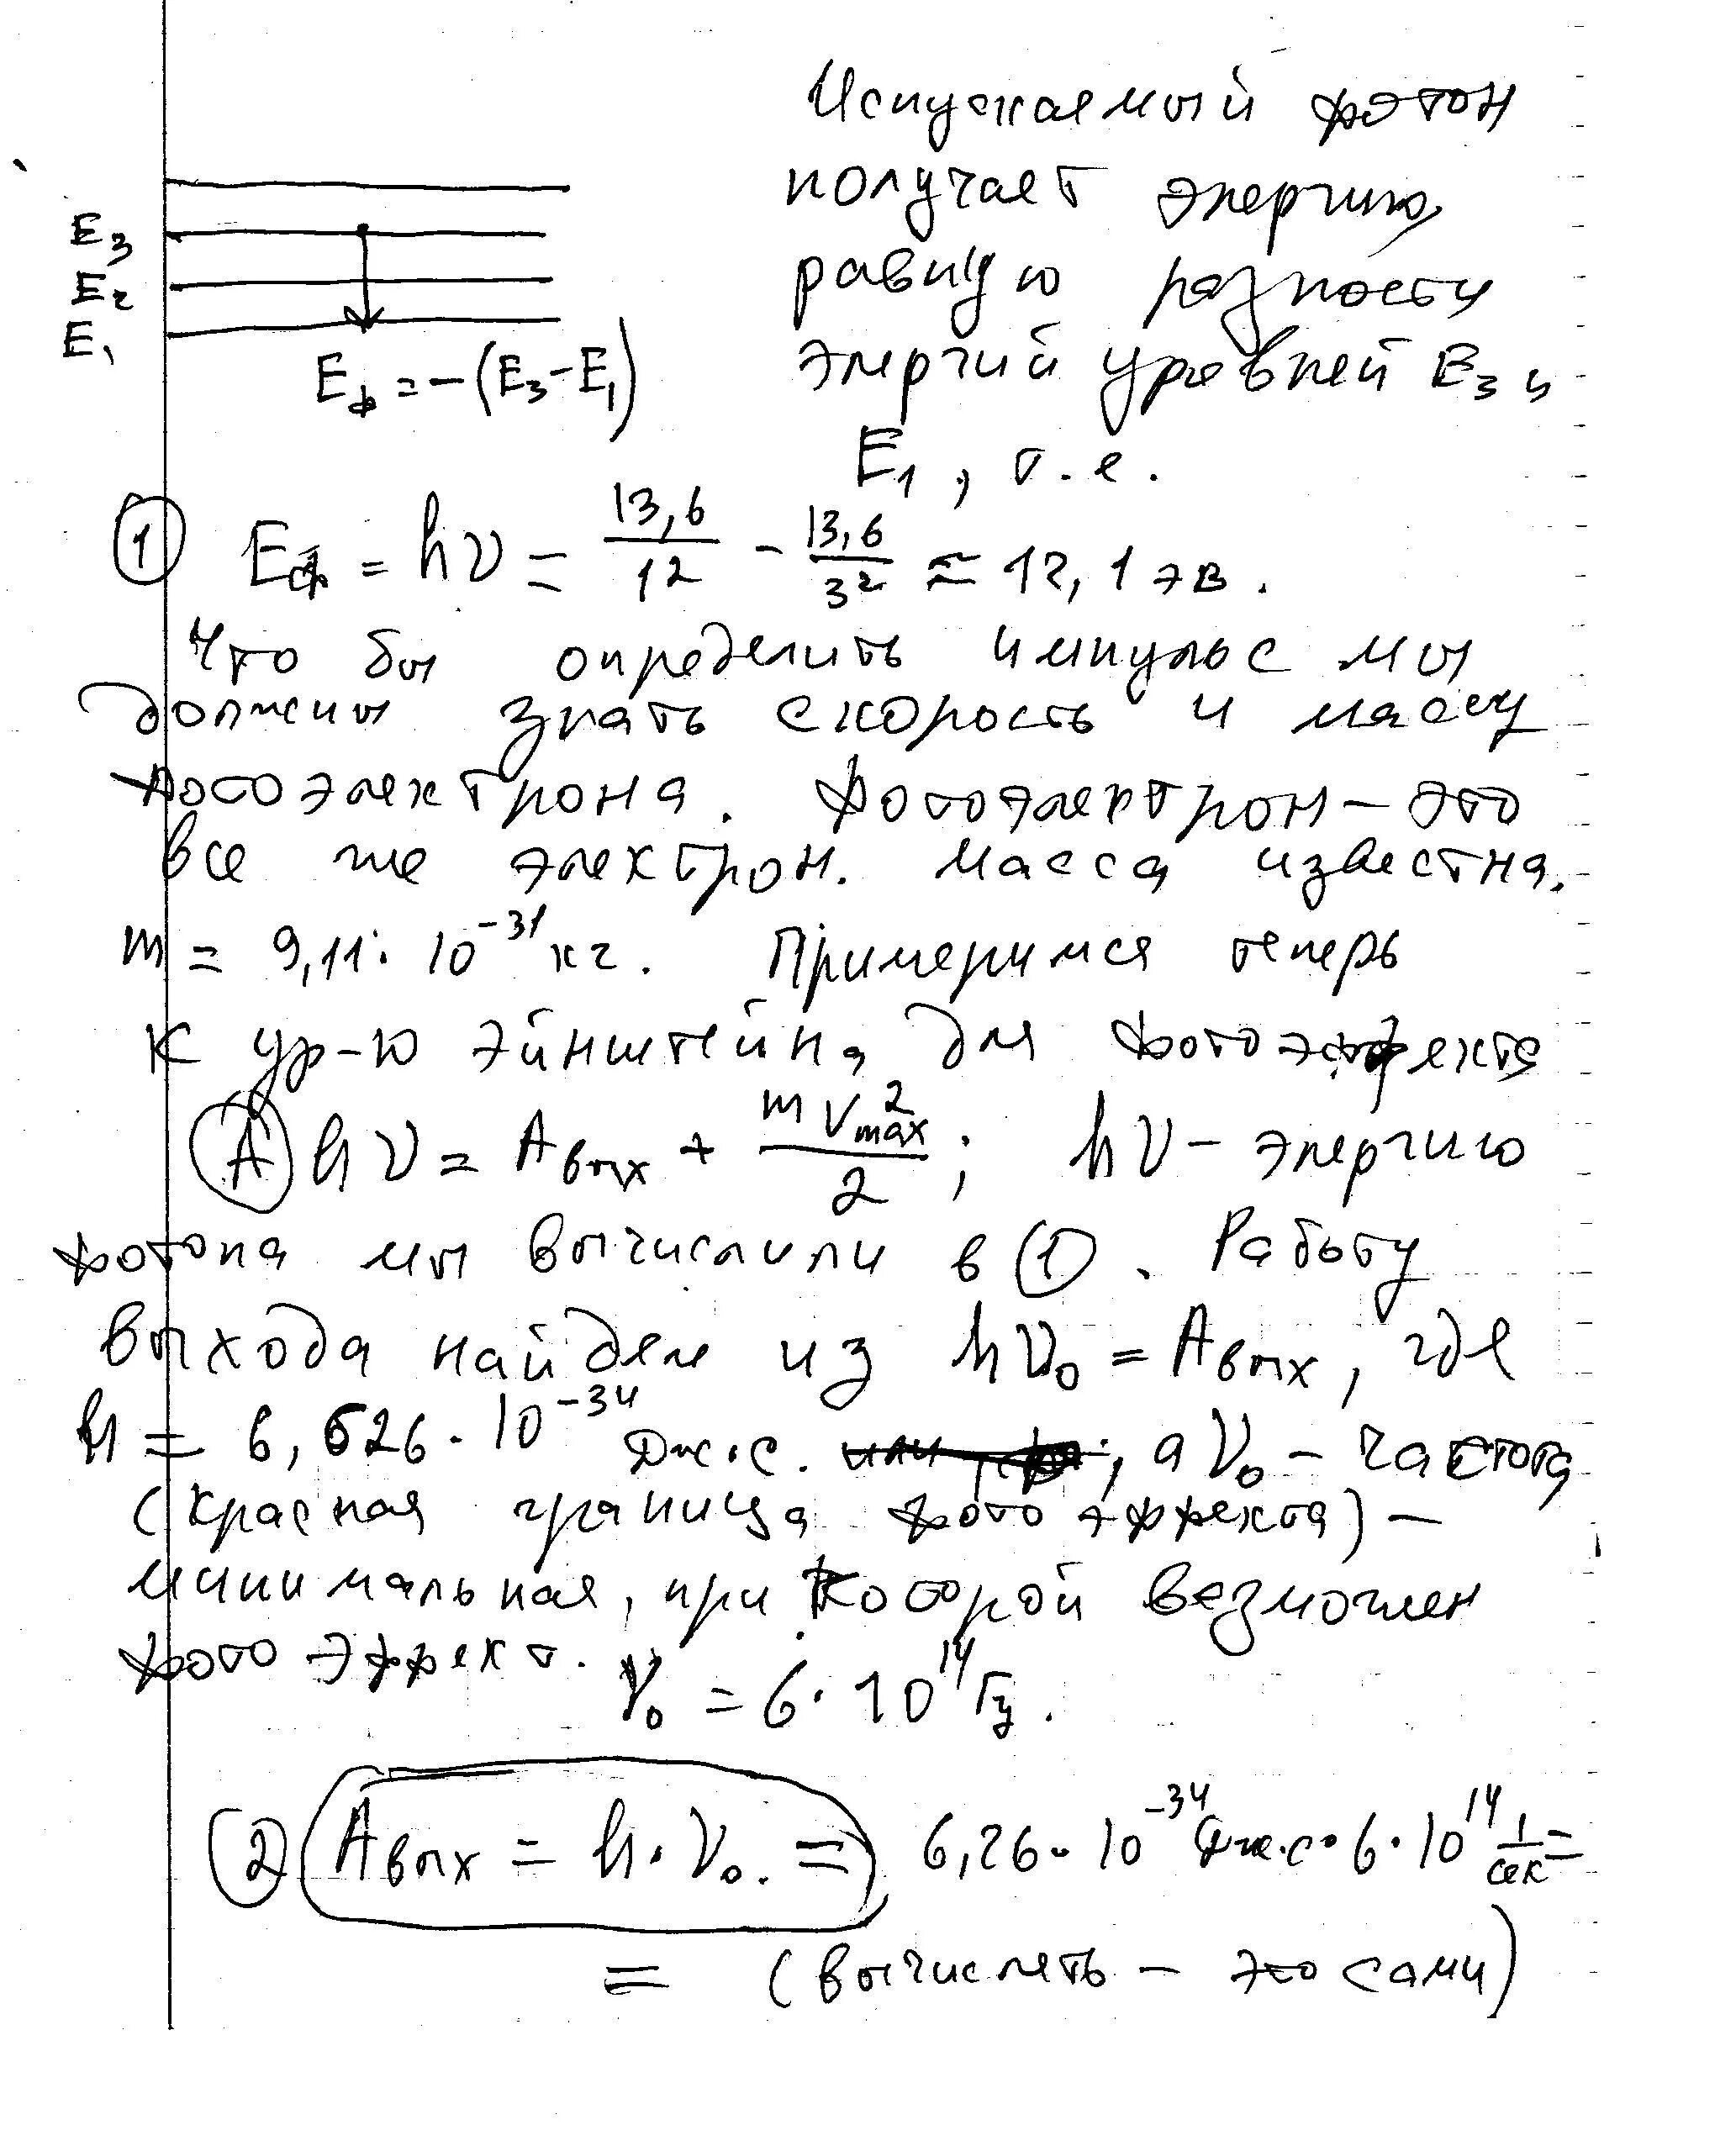 Испускаемый фотон
получает энергию,
равную разности
энергий уровней E₃ и
E₁, т.е.
E₃
E₂
E₁
Eф = -(E₃-E₁)
① Eф = hν = 13,6/1² - 13,6/3² ≈ 12,1 эв.
Что бы определить импульс мы
должны знать скорость и массу
фотоэлектрона. Фотоэлектрон - это
все же электрон. Масса известна.
m = 9,11·10⁻³¹ кг. Примеримся теперь
к ур-ю Эйнштейна для фотоэффекта
Ⓐ hν = Aвых + mVmax²/2; hν - энергию
фотона мы вычислили в ①. Работу
выхода найдем из hν₀ = Aвых, где
h = 6,626·10⁻³⁴ Дж·с., а ν₀ - частота
(красная граница фотоэффекта) -
минимальная, при которой возможен
фотоэффект. ν₀ = 6·10¹⁴ Гц.
② Aвых = h·ν₀. = 6,26·10⁻³⁴ Дж·с·6·10¹⁴ 1/сек =
= (вычислять - это сами)